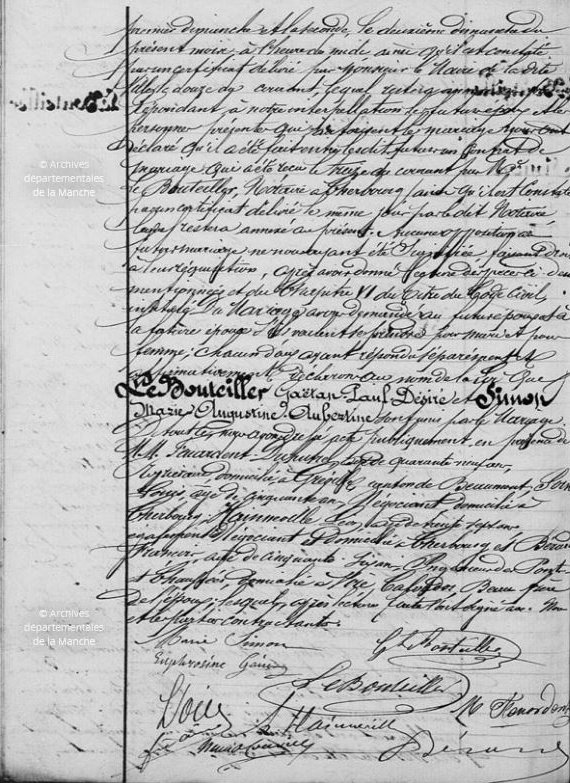 premier dimanche et la seconde le deuxième dimanche du
présent mois, à l'heure de midi ainsi qu'il est constaté
par un certificat délivré par Monsieur le Maire de la dite
ville le douze du courant, lequel restera
Répondant à notre interpellation les futurs époux et les
personnes présentes qui autorisent les mariage nous ont
déclaré qu'il a été fait entre les dits futurs un Contrat de
mariage qui a été reçu le treize du courant par Me
Le Bouteiller, Notaire à Cherbourg, ainsi qu'il est constaté
par un certificat délivré le même jour par le dit Notaire
lequel restera annexé au présent. Aucune opposition au
futur mariage ne nous ayant été signifiée, faisant droit
à leur réquisition, après avoir donné lecture des pièces ci-dessus
mentionnées et du Chapitre VI du titre du Code Civil,
intitulé du Mariage avons demandé au futur époux et à
la future épouse s'ils veulent se prendre pour mari et pour
femme; chacun d'eux ayant répondu séparément et
affirmativement déclarons au nom de la loi que
Le Bouteiller Gaëtan Paul Désiré et Simon
Marie Augustine Aubertine sont unis par le Mariage
De tout ce nous avons dressé acte publiquement, en présence de
M.M. âgé de quarante neuf ans,
domicilié à Gréville canton de Beaumont,
Louis, âgé de cinquante ans, Négociant domicilié à
Cherbourg, Hainneville Léon, âgé de trente sept ans
également Négociant et domicilié à Cherbourg et
François, âgé de cinquante six ans, Ingénieur des Ponts
et Chaussées, domicilié à Beau frère
de l'époux; lesquels, après lecture faite ont signé avec Nous
et les parties contractantes.
Marie Simon
G Le Bouteiller
Euphrosine
Le Bouteiller
L. Hainneville
© Archives
départementales
de la Manche
© Archives
départementales
de la Manche